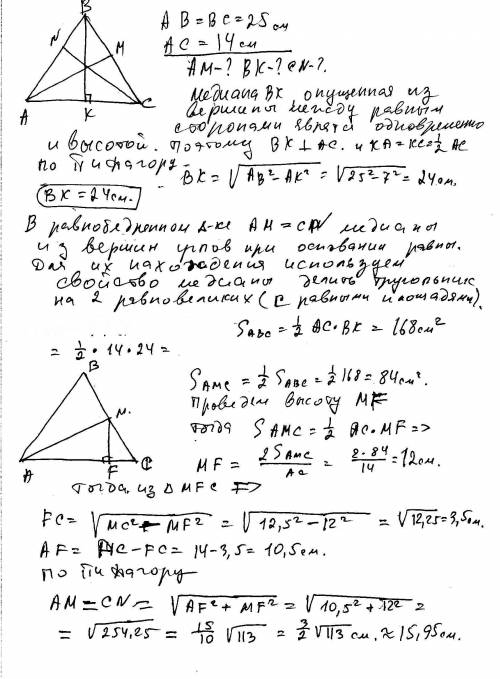 B
N
M
A
K
C
AB = BC = 25 см
AC = 14 см
AM-? BK-? CN-?.
Медиана BK опущенная из
вершины между равным
сторонами явятся одновременно
и высотой. Поэтому BK ⊥ AC. и KA = KC = 1/2 AC
по Пифагору-
BK = √(AB² - AK²) = √(25² - 7²) = 24 см.
BK = 24 см.
В равнобедренном Δ-ке AM = CN медианы
из вершин углов при основании равны.
Для их нахождения используем
свойство медианы делить треугольник
на 2 равновеликих (с равными площадями).
S ABC = 1/2 AC · BK = 168 см²
= 1/2 · 14 · 24 =
B
M.
A
F
C
S AMC = 1/2 S ABC = 1/2 168 = 84 см².
Проведем высоту MF
тогда S AMC = 1/2 AC · MF =>
MF = 2 S AMC / AC = 2·84 / 14 = 12 см.
Тогда из Δ MFC =>
FC = √(MC² - MF²) = √(12,5² - 12²) = √12,25 = 3,5 см.
AF = AC - FC = 14 - 3,5 = 10,5 см.
по Пифагору
AM = CN = √(AF² + MF²) = √(10,5² + 12²) =
= √254,25 = 15/10 √113 = 3/2 √113 см. ≈ 15,95 см.